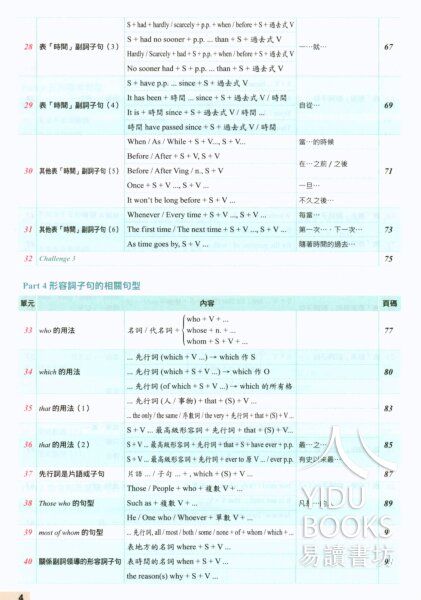 S + had + hardly / scarcely + p.p. + when / before + S + 過去式 V
28 表「時間」副詞子句（3） S + had no sooner + p.p. ... than + S + 過去式 V 一…就… 67
Hardly / Scarcely + had + S + p.p. + when / before + S + 過去式 V
No sooner had + S + p.p. ... than + S + 過去式 V
S + have p.p. ... since + S + 過去式 V
29 表「時間」副詞子句（4） It has been + 時間 ... since + S + 過去式 V / 時間 自從… 69
It is + 時間 since + S + 過去式 V / 時間 ...
時間 have passed since + S + 過去式 V / 時間
When / As / While + S + V..., S + V... 當…的時候
Before / After + S + V, S + V 在…之前 / 之後
30 其他表「時間」副詞子句（5） Before / After Ving / n., S + V 71
Once + S + V ..., S + V ... 一旦…
It won't be long before + S + V ... 不久之後…
Whenever / Every time + S + V ..., S + V... 每當…
31 其他表「時間」副詞子句（6） The first time / The next time + S + V ..., S + V ... 第一次…．下一次… 73
As time goes by, S + V ... 隨著時間的過去…
32 Challenge 3 75
Part 4 形容詞子句的相關句型
單元 內容 頁碼
who + V + ...
33 who 的用法 名詞 / 代名詞 + whose + n. + ... 77
whom + S + V + ...
... 先行詞 (which + V ...) → which 作 S
34 which 的用法 ... 先行詞 (which + S + V ...) → which 作 O 80
... 先行詞 (of which + S + V ...) → which 的所有格
35 that 的用法（1） ... 先行詞 (人 / 事物) + that + (S) + V ... 83
... the only / the same / 序數詞 / the very + 先行詞 + that + (S) + V ...
S + V ... 最高級形容詞 + 先行詞 + that + (S) + V...
36 that 的用法（2） S + V ... 最高級形容詞 + 先行詞 + that + S + have ever + p.p. 最…之… 85
S + V ... 最高級形容詞 + 先行詞 + ever to 原 V ... / ever p.p. 有史以來最…
37 先行詞是片語或子句 片語 ... / 子句 ... + , which + (S) + V ... 87
Those / People + who + 複數 V + ...
38 Those who 的句型 Such as + 複數 V + ... 凡是 89
He / One who / Whoever + 單數 V + ...
39 most of whom 的句型 ... 先行詞, all / most / both / some / none + of + whom / which + ... 9
表地方的名詞 where + S + V ...
40 關係副詞領導的形容詞子句 表時間的名詞 when + S + V ... 9
the reason(s) why + S + V ...
YIDU
BOOKS
易讀書坊
4